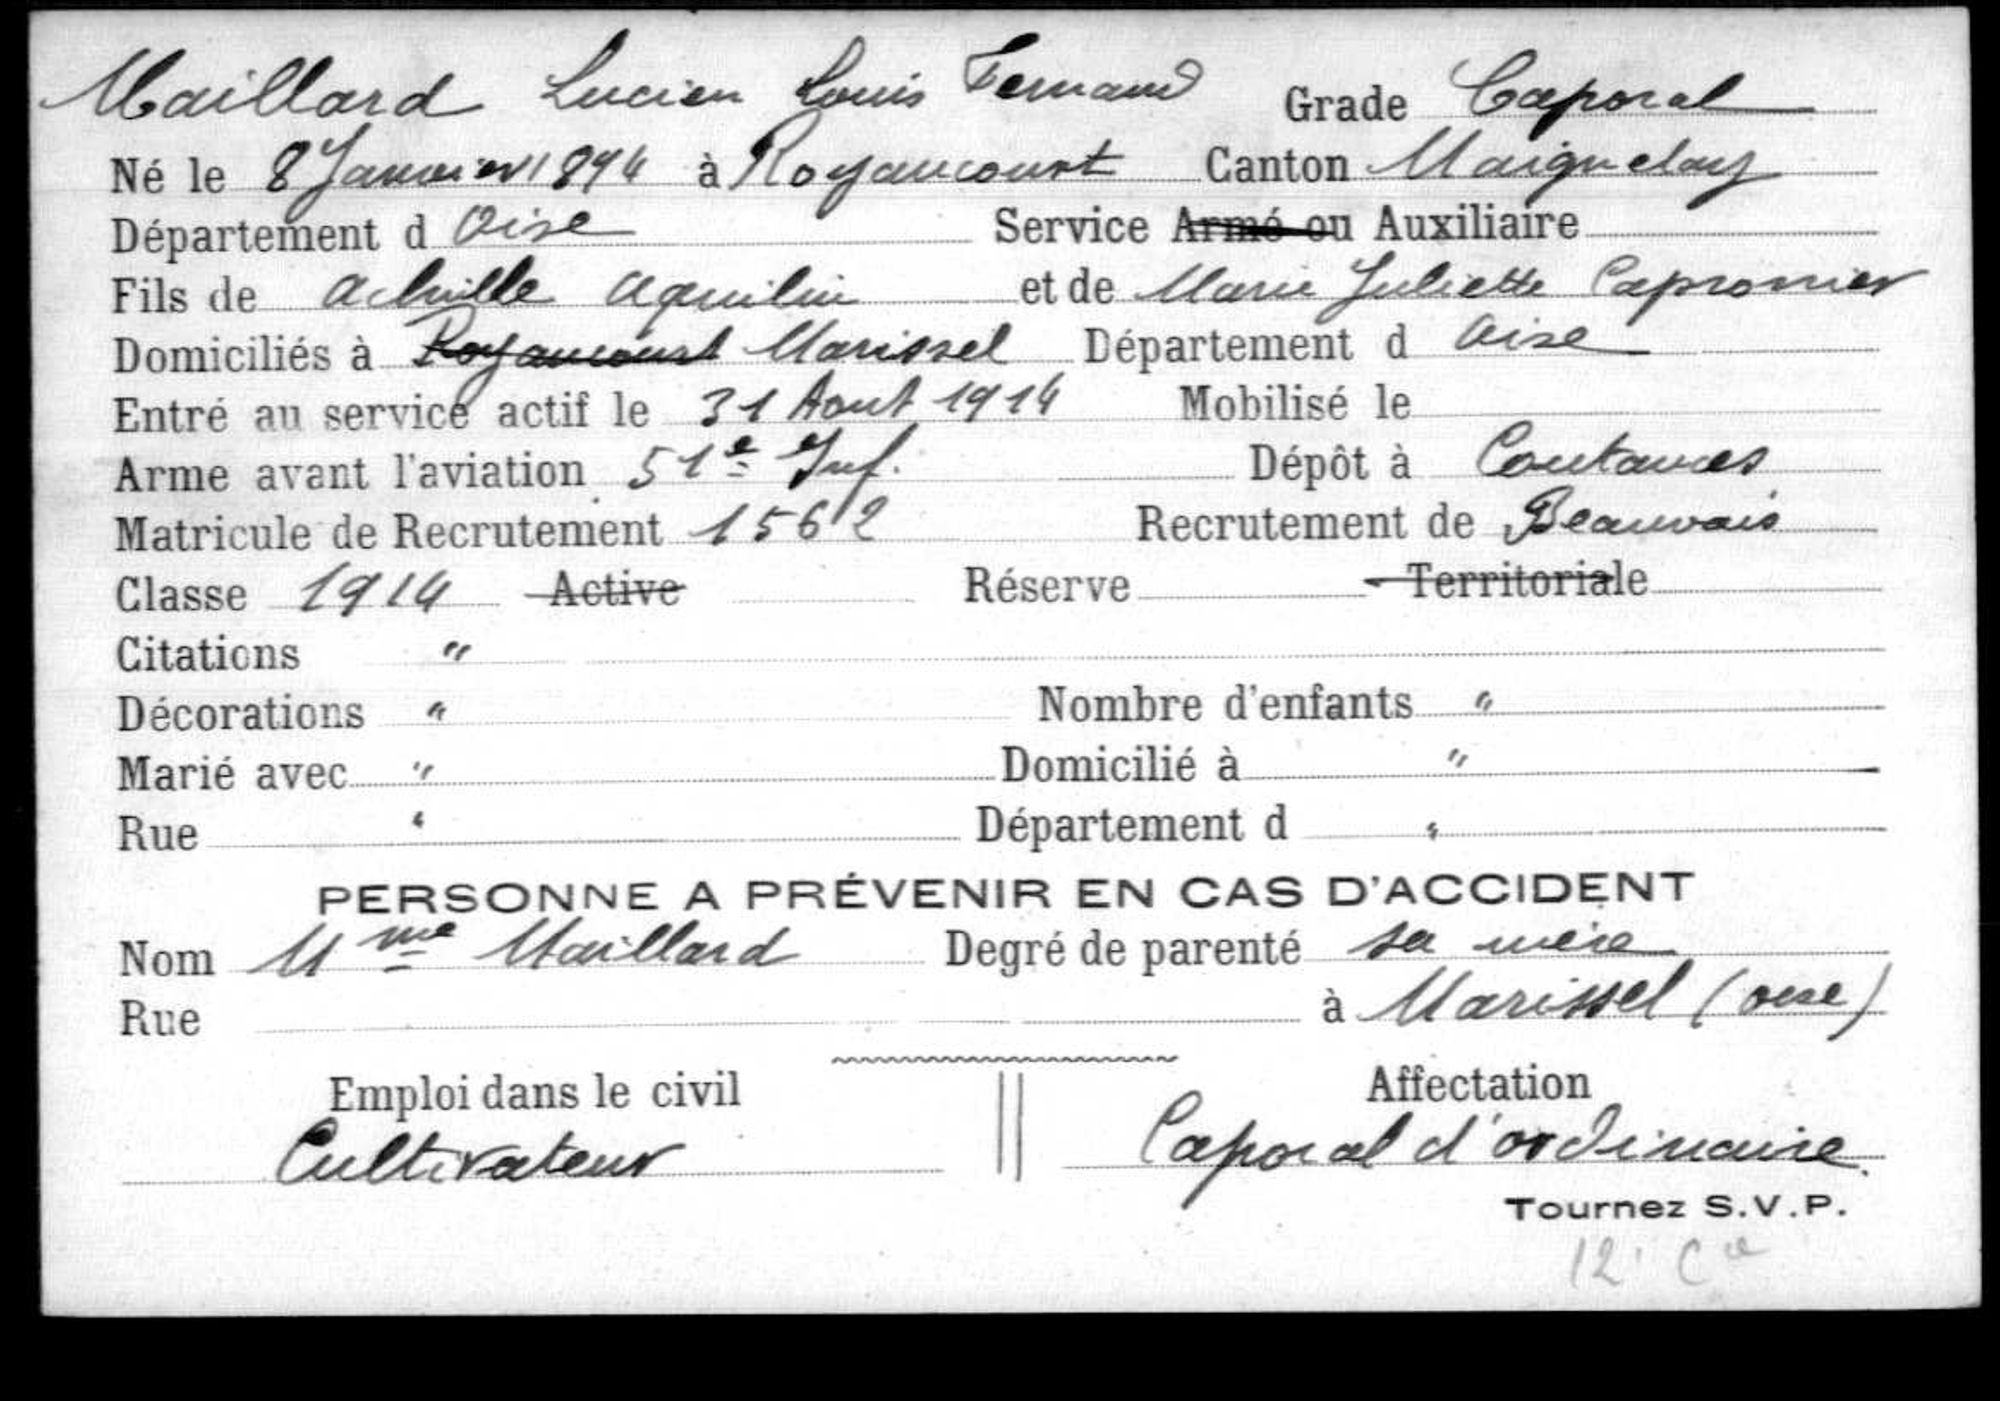 Maillard Lucien Louis Fernand Grade Caporal
Né le 8 Janvier 1894 à Royaucourt Canton Maignelay
Département d Oise Service Armé ou Auxiliaire
Fils de Achille Aquilin et de Marie Juliette Capronnier
Domiciliés à Royaucourt Marissel Département d Oise
Entré au service actif le 31 Aout 1914 Mobilisé le
Arme avant l'aviation 51e Inf. Dépôt à Coutances
Matricule de Recrutement 1562 Recrutement de Beauvais
Classe 1914 Active Réserve Territoriale
Citations "
Décorations " Nombre d'enfants "
Marié avec " Domicilié à "
Rue " Département d "
PERSONNE A PRÉVENIR EN CAS D'ACCIDENT
Nom Mme Maillard Degré de parenté sa mère
Rue à Marissel (oise)
Emploi dans le civil Affectation
Cultivateur Caporal d'ordinaire
Tournez S.V.P.
12e Cie